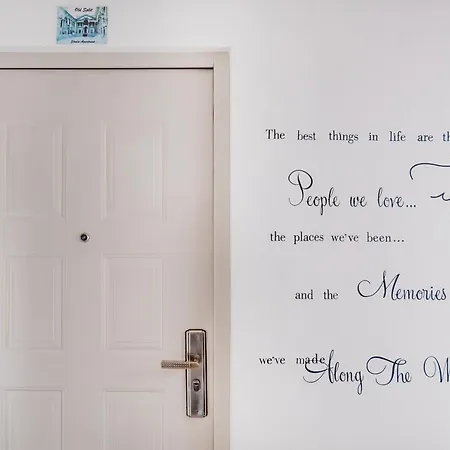 Old Salt
The best things in life are
People we love...
the places we've been...
and the Memories
we've made Along The